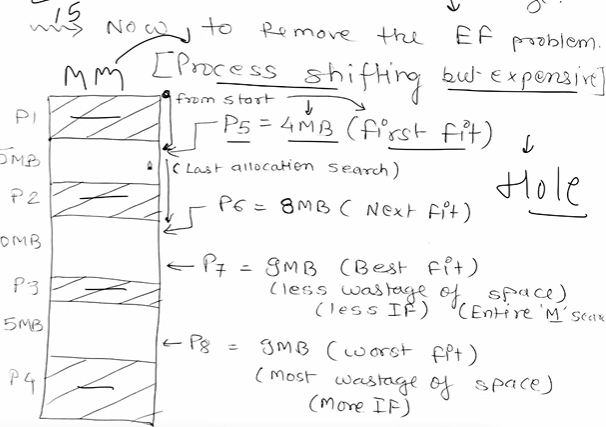 15
Now, to Remove the EF problem.
MM [Process shifting but expensive]
from start
P1
P5 = 4MB (first fit)
(Last allocation search)
Hole
P2
P6 = 8MB (Next fit)
P7 = 9MB (Best fit)
P3
(less wastage of space)
(less IF) (Entire 'M'
5MB
P8 = 9MB (worst fit)
P4
(Most wastage of space)
(More IF)